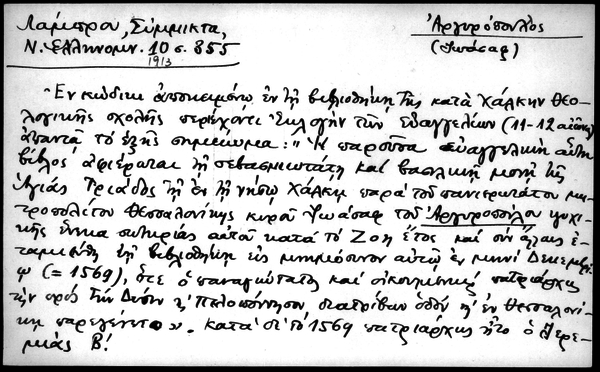 Λάμπρου, Σύμμικτα,
Ν. Ελληνομν. 10 σ. 355
1913
Ἀργυρόπουλος
(Ἰωάσαφ)
Ἐν κώδικι ἀποκειμένῳ ἐν τῇ βιβλιοθήκῃ τῆς κατὰ Χάλκην Θεο-
λογικῆς σχολῆς περιέχοντι Ἐκλογὴν τῶν εὐαγγελίων (11-12 αἰῶνος)
ἀπαντᾷ τὸ ἑξῆς σημείωμα: "Ἡ παροῦσα εὐαγγελικὴ αὕτη
βίβλος ἀφιέρωται τῇ σεβασμιωτάτῃ καὶ βασιλικῇ μονῇ τῆς
Ἁγίας Τριάδος τῇ ἐν τῇ νήσῳ Χάλκῃ παρὰ τοῦ πανιερωτάτου μη-
τροπολίτου Θεσσαλονίκης κυροῦ Ἰωάσαφ τοῦ Ἀργυροπούλου ψυχι-
κῆς ἕνεκα σωτηρίας αὐτοῦ κατὰ τὸ ζοη ἔτος καὶ
τῇ βιβλιοθήκῃ εἰς μνημόσυνον αὐτοῦ ἐν μηνὶ Δεκεμβρί-
ῳ (= 1569), ὅτε ὁ παναγιώτατος καὶ οἰκουμενικὸς πατριάρχης
τὴν πρὸς τὴν Δύσιν Πελοπόννησον διατρίβων ὁδὸν ἐν Θεσσαλονί-
κῃ παρεγένετο». Κατὰ δὲ τὸ 1569 πατριάρχης ἦτο ὁ Ἱερε-
μίας Β!